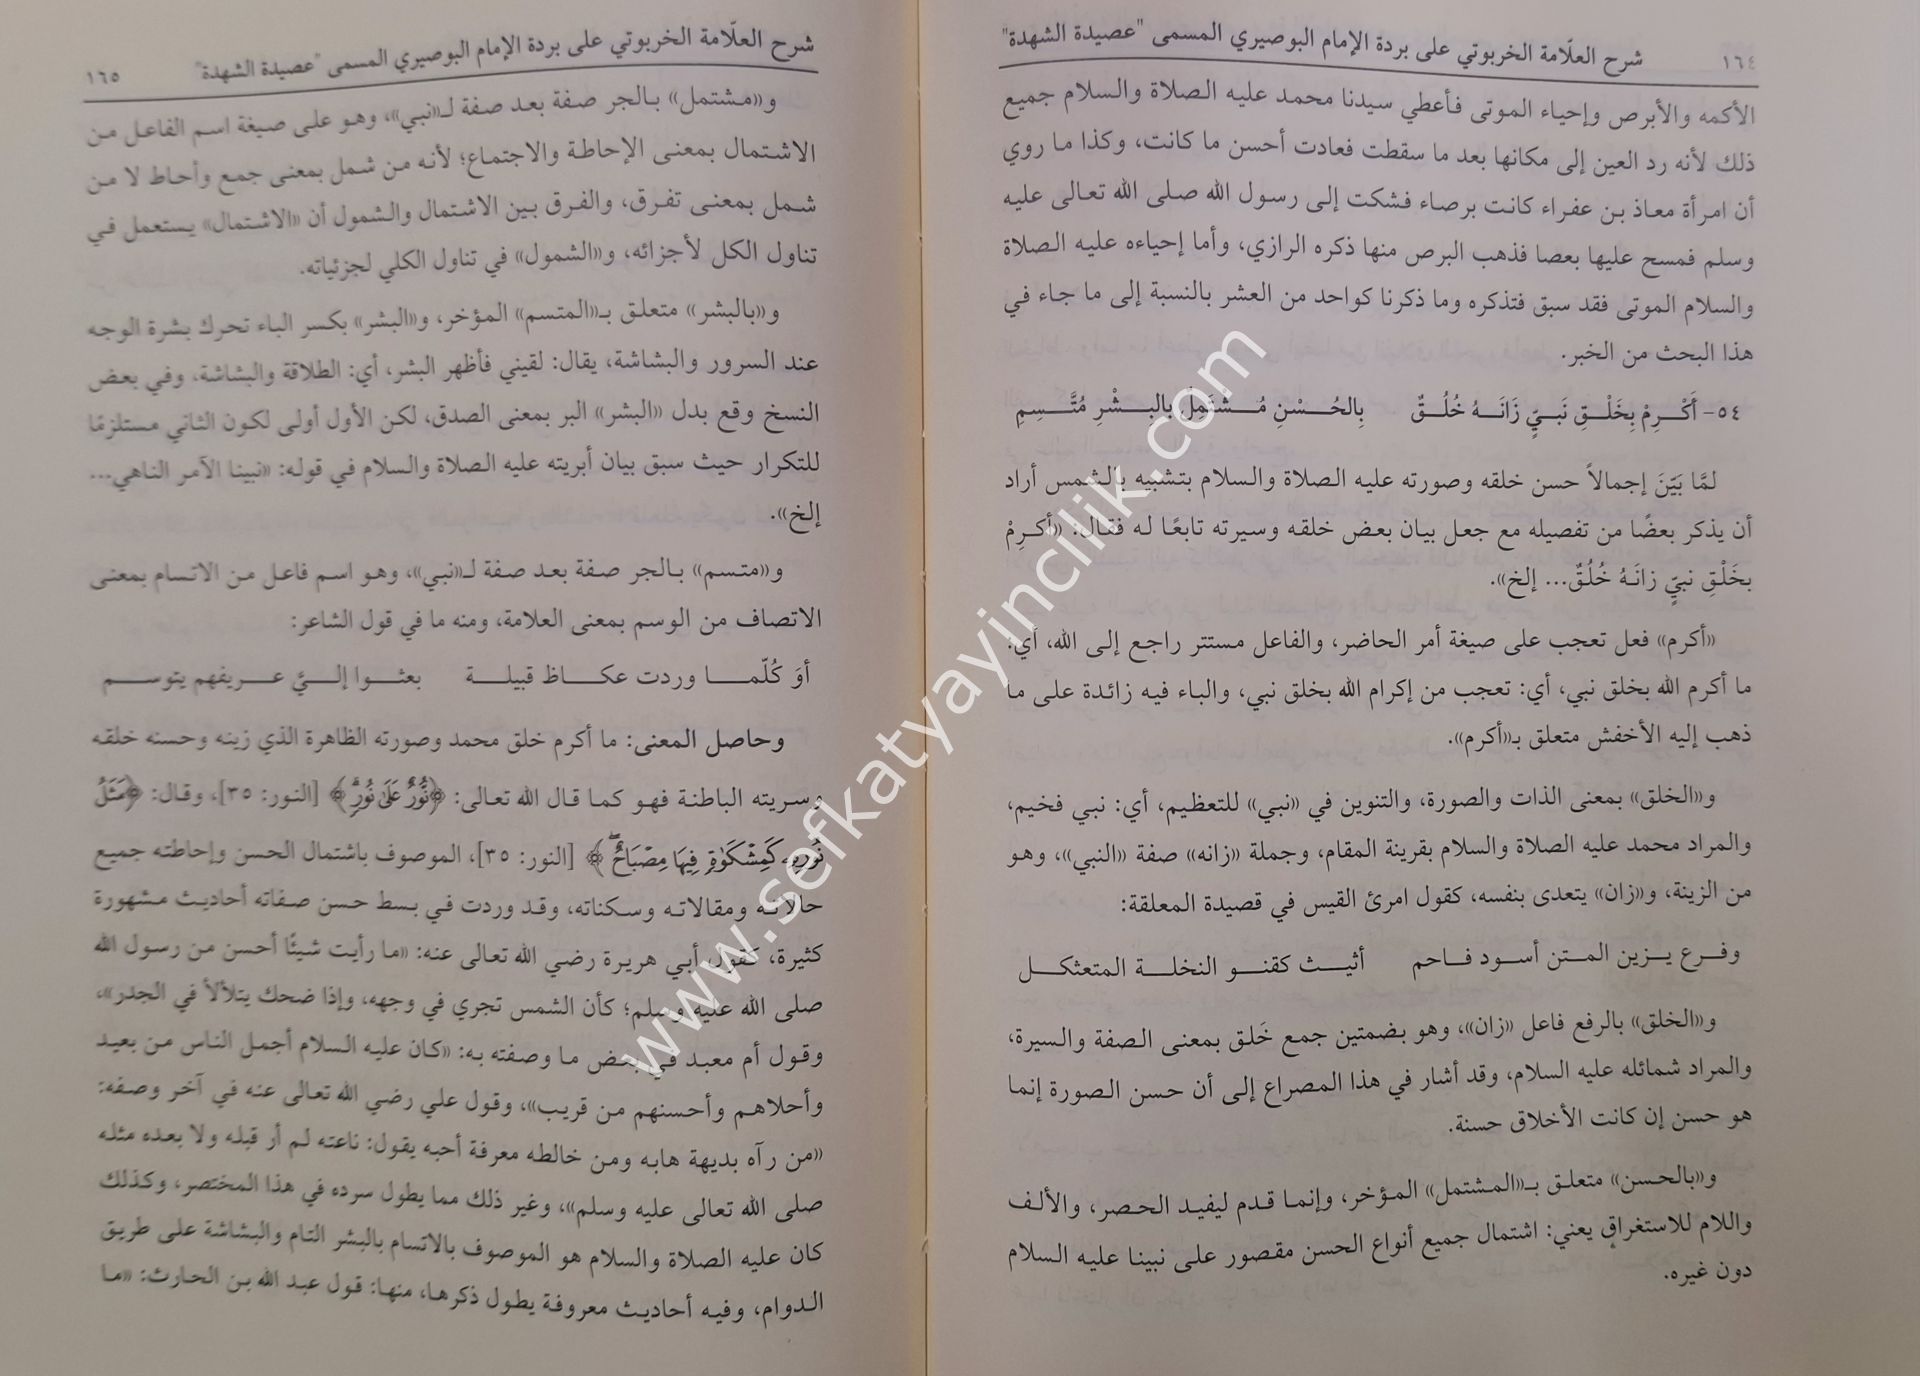 ١٦٤ شرح العلّامة الخربوتي على بردة الإمام البوصيري المسمى "عصيدة الشهدة"
الأكمه والأبرص وإحياء الموتى فأعطي سيدنا محمد عليه الصلاة والسلام جميع
ذلك لأنه رد العين إلى مكانها بعد ما سقطت فعادت أحسن ما كانت، وكذا ما روي
أن امرأة معاذ بن عفراء كانت برصاء فشكت إلى رسول الله صلى الله تعالى عليه
وسلم فمسح عليها بعصا فذهب البرص منها ذكره الرازي، وأما إحياءه عليه الصلاة
والسلام الموتى فقد سبق فتذكره وما ذكرنا كواحد من العشر بالنسبة إلى ما جاء في
هذا البحث من الخبر.
٥٤- أَكْرِمْ بِخَلْقِ نَبِيٍّ زَانَهُ خُلُقٌ بِالحُسْنِ مُشْتَمِلٍ بِالبِشْرِ مُتَّسِمِ
لمَّا بَيّنَ إجمالاً حسن خلقه وصورته عليه الصلاة والسلام بتشبيه بالشمس أراد
أن يذكر بعضًا من تفصيله مع جعل بيان بعض خلقه وسيرته تابعًا له فقال: «أكرِمْ
بخَلْقِ نبيٍّ زانَهُ خُلُقٌ... إلخ».
«أكرم» فعل تعجب على صيغة أمر الحاضر، والفاعل مستتر راجع إلى الله، أي:
ما أكرم الله بخلق نبي، أي: تعجب من إكرام الله بخلق نبي، والباء فيه زائدة على ما
ذهب إليه الأخفش متعلق بـ«أكرم».
و«الخلق» بمعنى الذات والصورة، والتنوين في «نبي» للتعظيم، أي: نبي فخيم،
والمراد محمد عليه الصلاة والسلام بقرينة المقام، وجملة «زانه» صفة «النبي»، وهو
من الزينة، و«زان» يتعدى بنفسه، كقول امرئ القيس في قصيدة المعلقة:
وفرع يزين المتن أسود فاحم أثيث كقنو النخلة المتعثكل
و«الخلق» بالرفع فاعل «زان»، وهو بضمتين جمع خَلق بمعنى الصفة والسيرة،
والمراد شمائله عليه السلام، وقد أشار في هذا المصراع إلى أن حسن الصورة إنما
هو حسن إن كانت الأخلاق حسنة.
و«بالحسن» متعلق بـ«المشتمل» المؤخر، وإنما قدم ليفيد الحصر، والألف
واللام للاستغراق يعني: اشتمال جميع أنواع الحسن مقصور على نبينا عليه السلام
دون غيره.
شرح العلّامة الخربوتي على بردة الإمام البوصيري المسمى "عصيدة الشهدة" ١٦٥
و«مشتمل» بالجر صفة بعد صفة لـ«نبي»، وهو على صيغة اسم الفاعل من
الاشتمال بمعنى الإحاطة والاجتماع؛ لأنه من شمل بمعنى جمع وأحاط لا من
شمل بمعنى تفرق، والفرق بين الاشتمال والشمول أن «الاشتمال» يستعمل في
تناول الكل لأجزائه، و«الشمول» في تناول الكلي لجزئياته.
و«بالبشر» متعلق بـ«المتسم» المؤخر، و«البشر» بكسر الباء تحرك بشرة الوجه
عند السرور والبشاشة، يقال: لقيني فأظهر البشر، أي: الطلاقة والبشاشة، وفي بعض
النسخ وقع بدل «البشر» البر بمعنى الصدق، لكن الأول أولى لكون الثاني مستلزمًا
للتكرار حيث سبق بيان أبريته عليه الصلاة والسلام في قوله: «نبينا الآمر الناهي...
إلخ».
و«متسم» بالجر صفة بعد صفة لـ«نبي»، وهو اسم فاعل من الاتسام بمعنى
الاتصاف من الوسم بمعنى العلامة، ومنه ما في قول الشاعر:
أوَ كُلّما وردت عكاظ قبيلة بعثوا إليّ عريفهم يتوسم
وحاصل المعنى: ما أكرم خلق محمد وصورته الظاهرة الذي زينه وحسنه خلقه
وسريته الباطنة فهو كما قال الله تعالى: ﴿نُّورٌ عَلَىٰ نُورٍ﴾ [النور: ٣٥]، وقال: ﴿مَثَلُ
نُورِهِ كَمِشْكَوٰةٍ فِيهَا مِصْبَاحٌ﴾ [النور: ٣٥]، الموصوف باشتمال الحسن وإحاطته جميع
حالاته ومقالاته وسكناته، وقد وردت في بسط حسن صفاته أحاديث مشهورة
كثيرة، كقول أبي هريرة رضي الله تعالى عنه: «ما رأيت شيئًا أحسن من رسول الله
صلى الله عليه وسلم؛ كأن الشمس تجري في وجهه، وإذا ضحك يتلألأ في الجدر»،
وقول أم معبد في بعض ما وصفته به: «كان عليه السلام أجمل الناس من بعيد
وأحلاهم وأحسنهم من قريب»، وقول علي رضي الله تعالى عنه في آخر وصفه:
«من رآه بديهة هابه ومن خالطه معرفة أحبه يقول: ناعته لم أر قبله ولا بعده مثله
صلى الله تعالى عليه وسلم»، وغير ذلك مما يطول سرده في هذا المختصر، وكذلك
كان عليه الصلاة والسلام هو الموصوف بالاتسام بالبشر التام والبشاشة على طريق
الدوام، وفيه أحاديث معروفة يطول ذكرها، منها: قول عبد الله بن الحارث: «ما
www.sefkatyayincilik.com